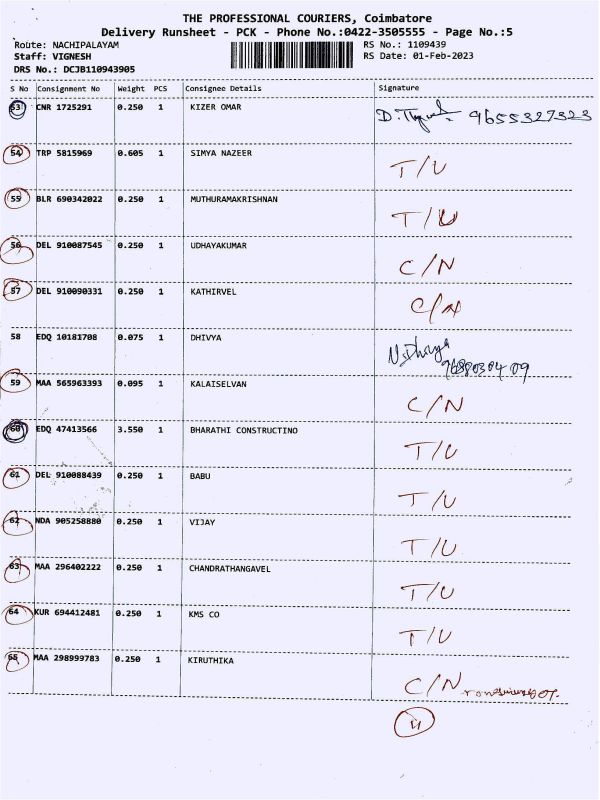 THE PROFESSIONAL COURIERS, Coimbatore
Delivery Runsheet - PCK - Phone No.:0422-3505555 - Page No.:5
Route: NACHIPALAYAM RS No.: 1109439
Staff: VIGNESH RS Date: 01-Feb-2023
DRS No.: DCJB110943905
S No Consignment No Weight PCS Consignee Details Signature
53 CNR 1725291 0.250 1 KIZER OMAR 9655327323
54 TRP 5815969 0.605 1 SIMYA NAZEER T/U
55 BLR 690342022 0.250 1 MUTHURAMAKRISHNAN T/U
56 DEL 910087545 0.250 1 UDHAYAKUMAR C/N
57 DEL 910090331 0.250 1 KATHIRVEL C/N
58 EDQ 10181708 0.075 1 DHIVYA N.Dhivya
59 MAA 565963393 0.095 1 KALAISELVAN C/N
60 EDQ 47413566 3.550 1 BHARATHI CONSTRUCTINO T/U
61 DEL 910088439 0.250 1 BABU T/U
62 NDA 905258880 0.250 1 VIJAY T/U
63 MAA 296402222 0.250 1 CHANDRATHANGAVEL T/U
64 KUR 694412481 0.250 1 KMS CO T/U
65 MAA 298999783 0.250 1 KIRUTHIKA C/N
11